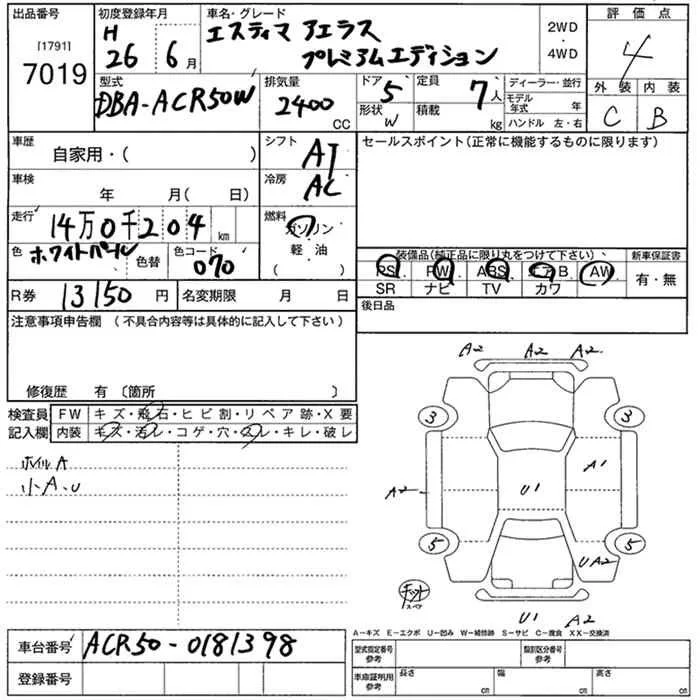 出品番号 初度登録年月 車名・グレード 評価点
[1791]
7019
H
26 6月
エスティマ アエラス
プレミアムエディション
2WD
・
4WD
4
型式 排気量 ドア 定員 ディーラー・並行 外装 内装
DBA-ACR50W 2400 CC 5 7人
形状 W 積載 kg
モデル年式 年
ハンドル 左・右
C B
車歴 シフト セールスポイント(正常に機能するものに限ります)
自家用・( ) AT
車検 冷房
年 月( 日) AC
走行 燃料
14万0千204km ガソリン
・
軽油
色 色替 色コード
ホワイトパール 070
装備品(純正品に限り丸をつけて下さい) 新車保証書
PS PW ABS エアB AW 有・無
SR ナビ TV カワ
R券 13150円 名変期限 月 日 後日品
注意事項申告欄 (不具合内容等は具体的に記入して下さい)
修復歴 有 〔箇所 〕
検査員 FW キズ・飛石・ヒビ割・リペア跡・X要
記入欄 内装 キズ・汚レ・コゲ・穴・スレ・キレ・破レ
ホイルA
小A.U
A2 A2 A2
3 3
A1
A2
U1
5 5
UA2
キット
スペア
U1 A2
A-キズ E-エクボ U-凹み W-補修跡 S-サビ C-腐食 XX-交換済
車台番号 ACR50-0181398
登録番号
型式指定番号
参考
類別区分番号
参考
車庫証明用
参考
長さ cm 幅 cm 高さ cm